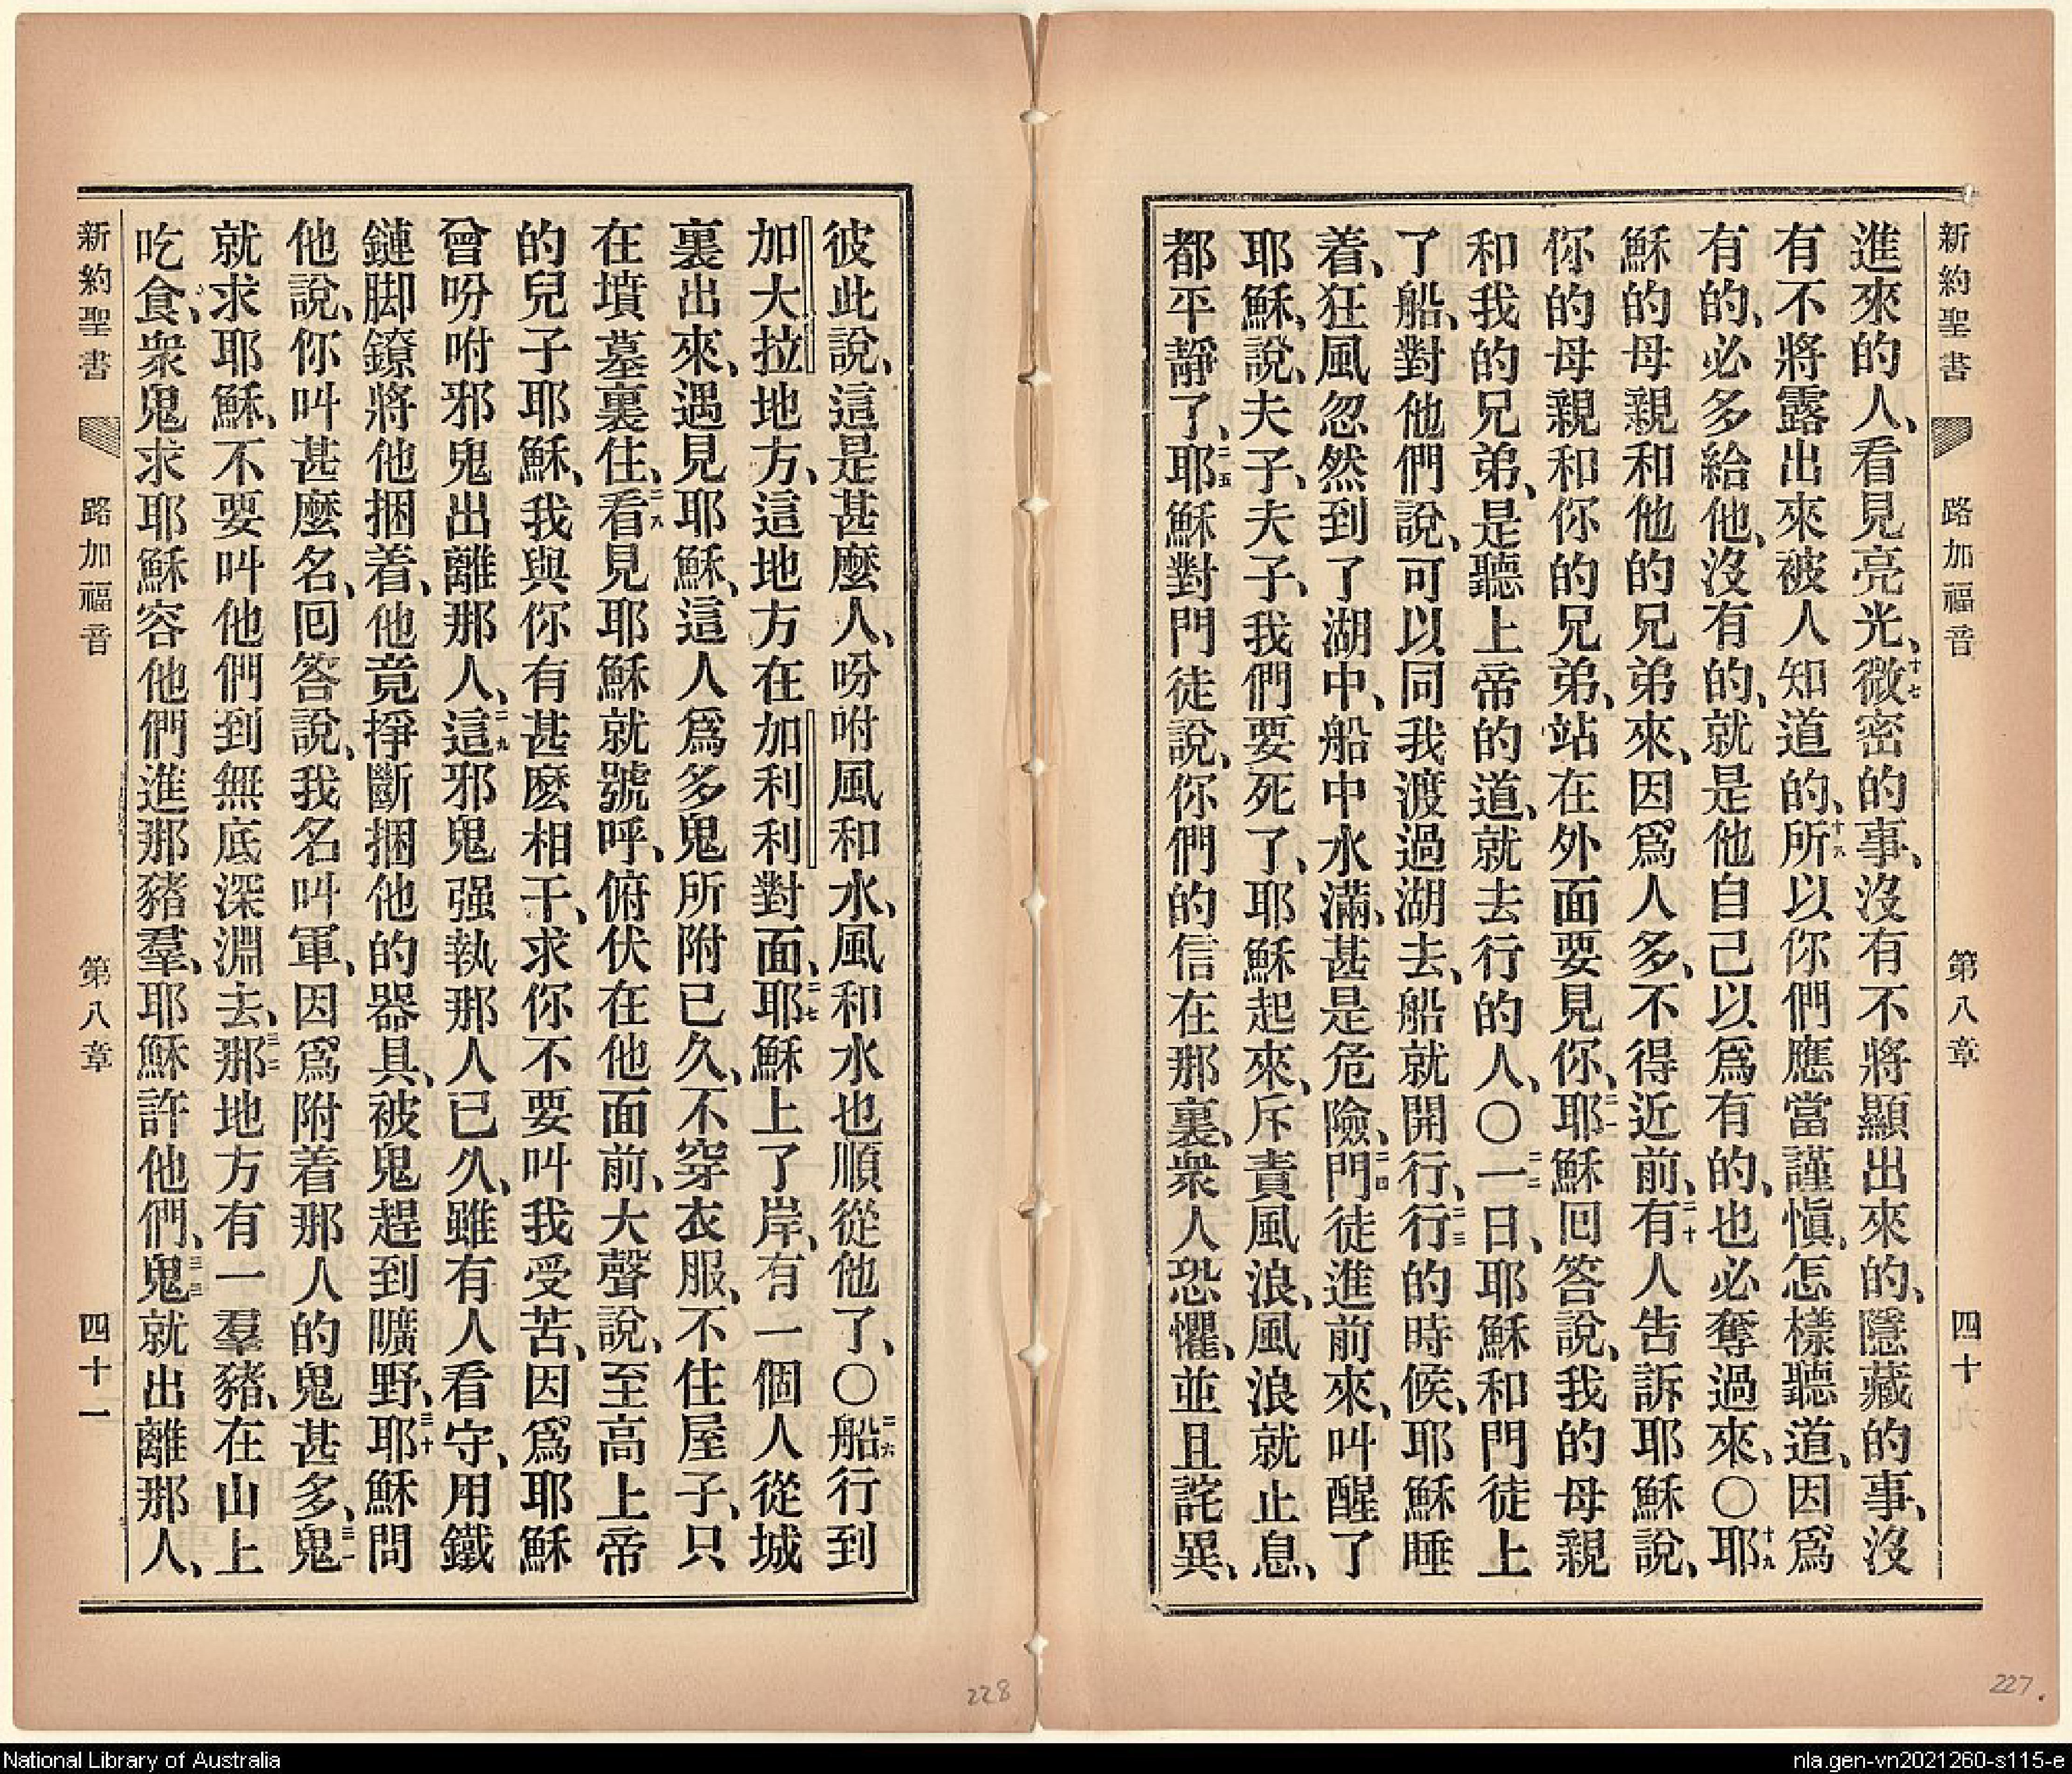 新約聖書 路加福音 第八章 四十
進來的人、看見亮光、十七微密的事、沒有不將顯出來的、隱藏的事、沒
有不將露出來被人知道的、十八所以你們應當謹愼、怎樣聽道、因爲
有的、必多給他、沒有的、就是他自己以爲有的、也必奪過來、〇十九耶
穌的母親和他的兄弟來、因爲人多、不得近前、二十有人告訴耶穌說、
你的母親和你的兄弟、站在外面要見你、二一耶穌回答說、我的母親
和我的兄弟、是聽上帝的道、就去行的人、〇二二一日、耶穌和門徒上
了船、對他們說、可以同我渡過湖去、船就開行、二三行的時候、耶穌睡
着、狂風忽然到了湖中、船中水滿、甚是危險、二四門徒進前來、叫醒了
耶穌、說、夫子、夫子、我們要死了、耶穌起來、斥責風浪、風浪就止息、
都平靜了、二五耶穌對門徒說、你們的信在那裏、衆人恐懼、並且詫異、
彼此說、這是甚麼人、吩咐風和水、風和水也順從他了、〇二六船行到
加大拉地方、這地方在加利利對面、二七耶穌上了岸、有一個人從城
裏出來、遇見耶穌、這人爲多鬼所附已久、不穿衣服、不住屋子、只
在墳墓裏住、二八看見耶穌就號呼、俯伏在他面前、大聲說、至高上帝
的兒子耶穌、我與你有甚麽相干、求你不要叫我受苦、因爲耶穌
曾吩咐邪鬼出離那人、二九這邪鬼强執那人已久、雖有人看守、用鐵
鏈脚鐐將他捆着、他竟掙斷捆他的器具、被鬼趕到曠野、三十耶穌問
他說、你叫甚麼名、回答說、我名叫軍、因爲附着那人的鬼甚多、三一鬼
就求耶穌、不要叫他們到無底深淵去、三二那地方有一羣豬、在山上
吃食、衆鬼求耶穌容他們進那豬羣、耶穌許他們、三三鬼就出離那人、
新約聖書 路加福音 第八章 四十一
228
227.
National Library of Australia
nla.gen-vn2021260-s115-e